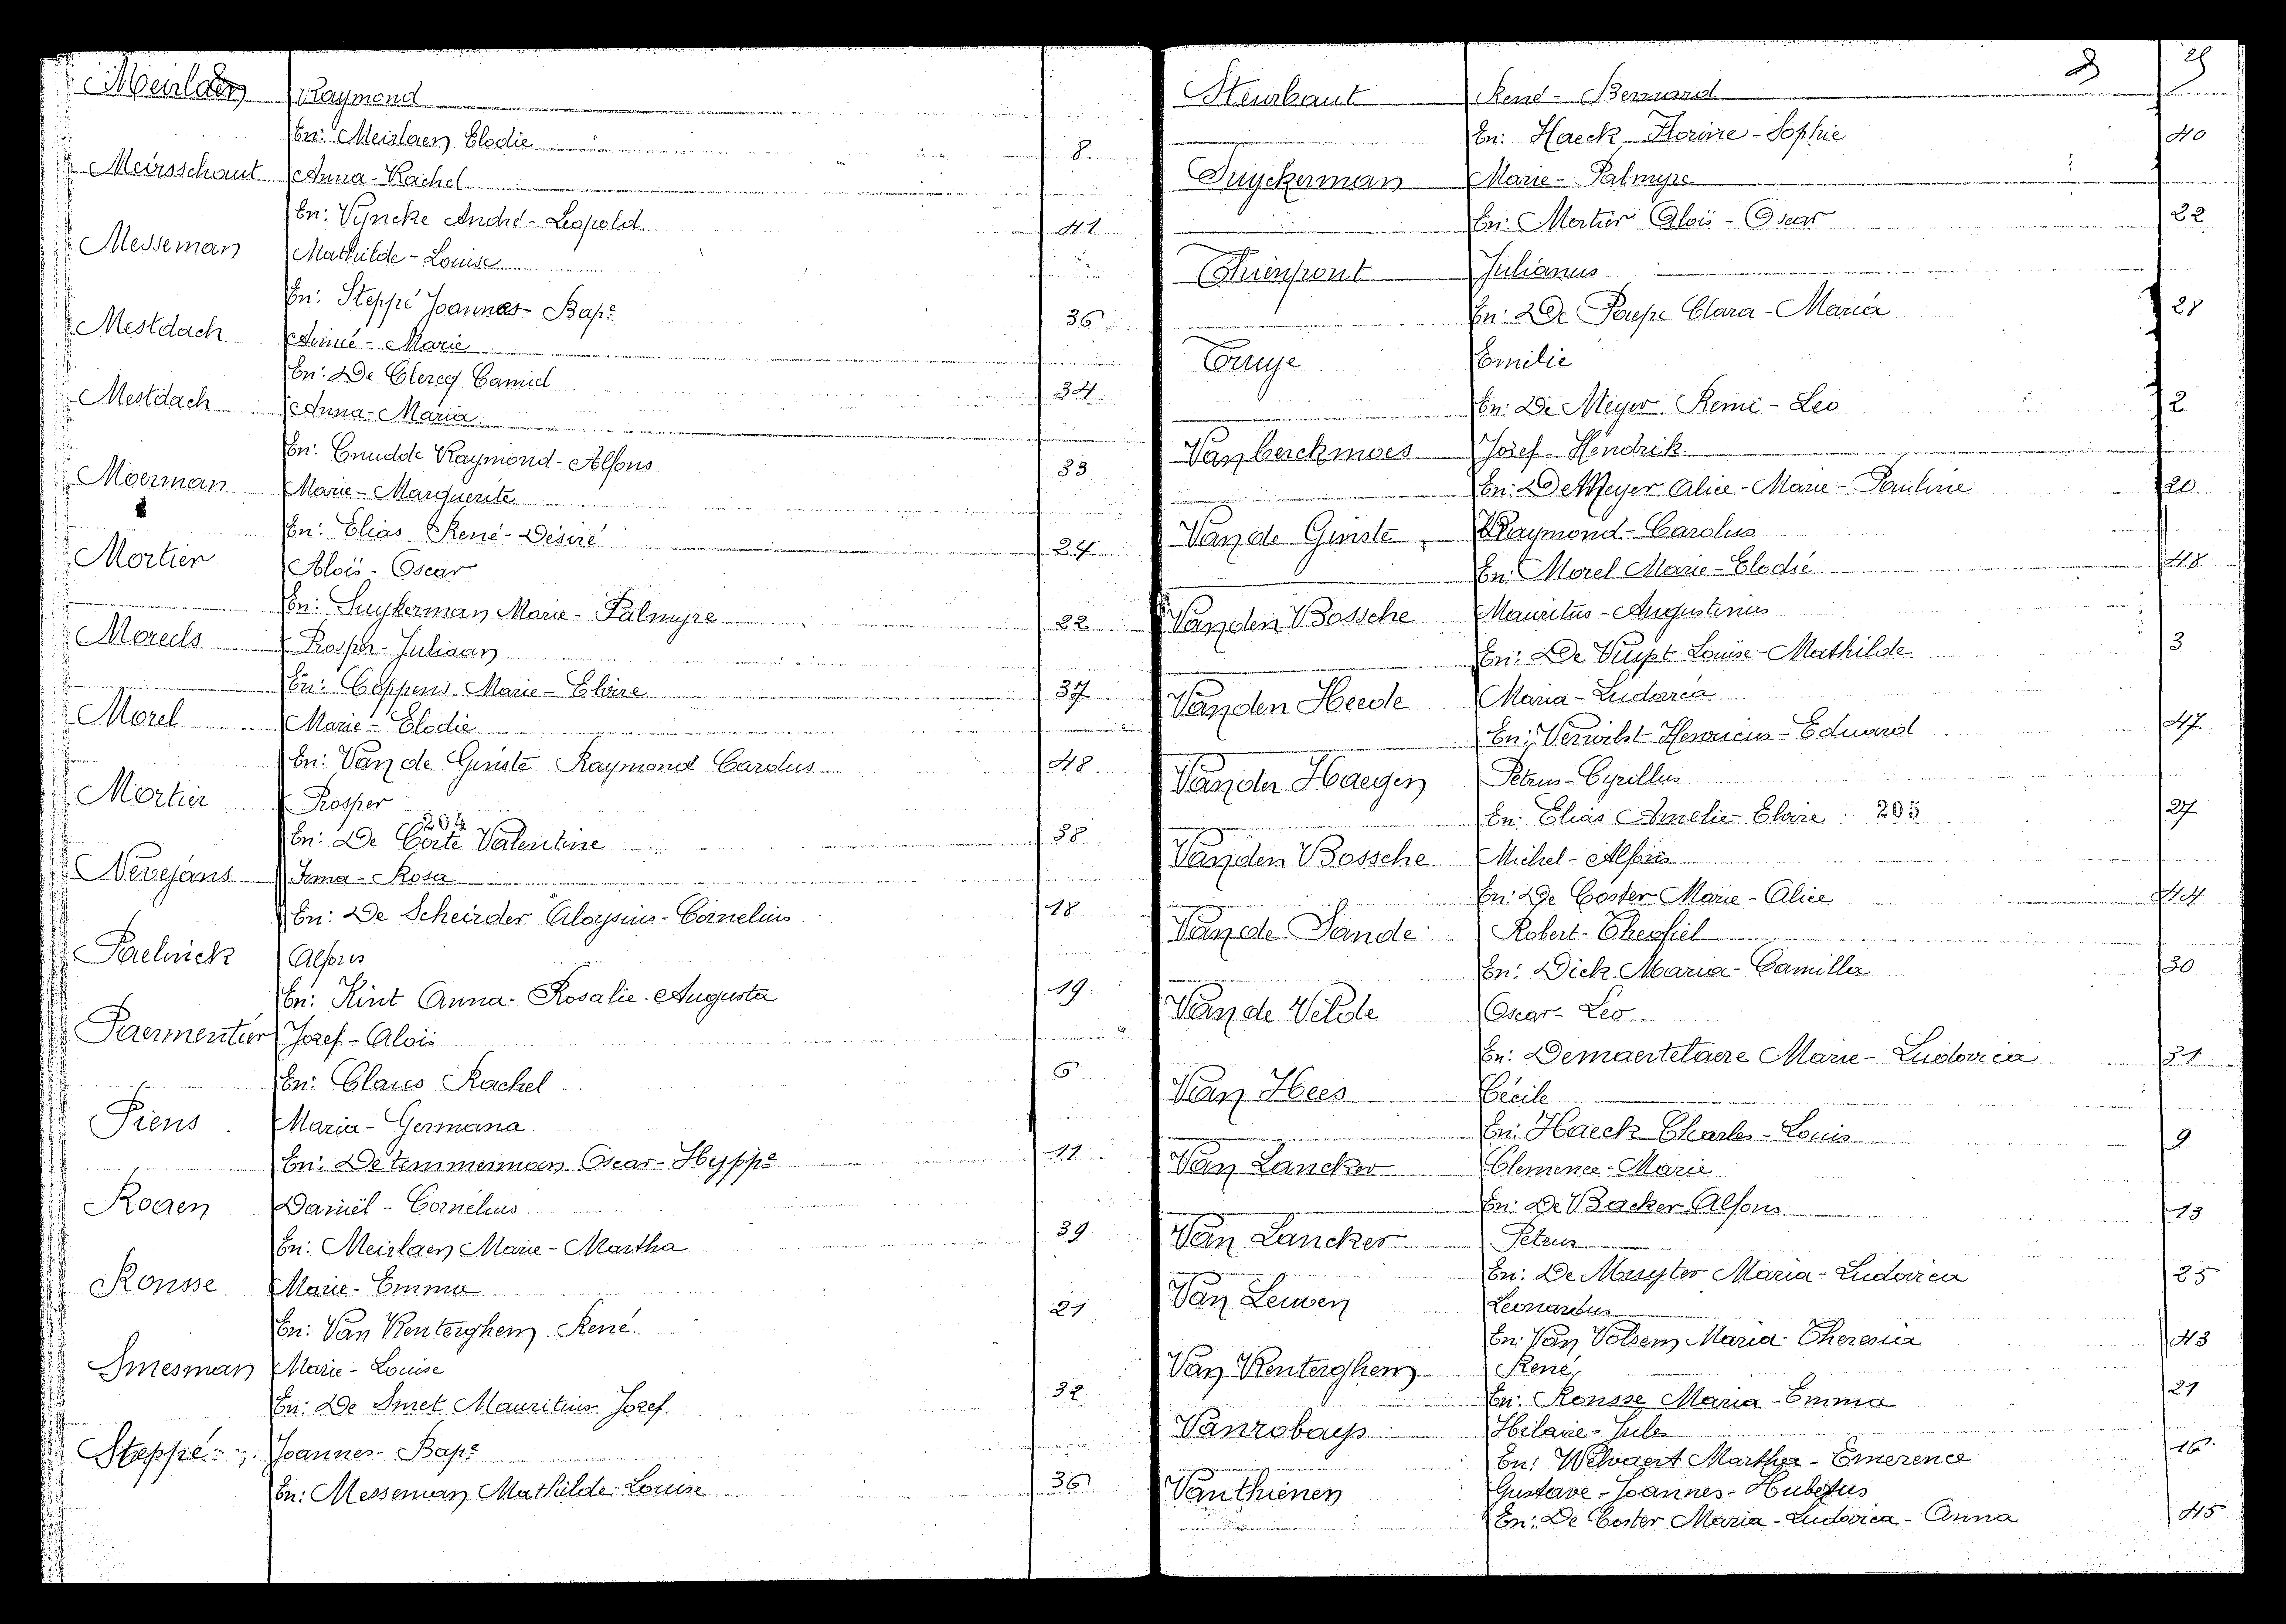 Raymond
En: Meirlaen Elodie 8
Meirsschaut Anna-Rachel
En: Vyncke André-Leopold 41
Messeman Mathilde-Louise
En: Steppé Joannes-Bap.e 36
Mestdach Aimé-Marie
En: De Clercq Camiel 34
Mestdach Anna-Maria
En: Cnudde Raymond-Alfons 33
Moerman Marie-Marguerite
En: Elias René-Désiré 24
Mortier Aloïs-Oscar
En: Suykerman Marie-Palmyre 22
Moreels Prosper-Juliaan
En: Coppens Marie-Elvire 37
Morel Marie-Elodie
En: Van de Ginste Raymond Carolus 48
Mortier Prosper
204
En: De Corte Valentine 38
Nevejans Irma-Rosa
En: De Scheirder Aloysius-Cornelius 18
Paelinck Alfons
En: Kint Anna-Rosalie-Augusta 19
Paermentier Jozef-Aloïs
En: Claus Rachel 6
Piens Maria-Germana
En: De temmerman Oscar-Hypp.e 11
Rogen Daniël-Cornelius
En: Meirlaen Marie-Martha 39
Ronsse Marie-Emma
En: Van Renterghem René 21
Smesman Marie-Louise
En: De Smet Mauritius-Jozef 32
Steppé Joannes-Bap.e
En: Messeman Mathilde-Louise 36
Steurbaut René-Bernard
En: Haeck Florine-Sophie 40
Suyckerman Marie-Palmyre
En: Mortier Aloïs-Oscar 22
Thienpont Julianus
En: De Paepe Clara-Maria
Truye Emilie
En: De Meyer Remi-Leo 2
Vanberckmoes Jozef-Hendrik
En: De Meyer Alice-Marie-Pauline 20
Van de Ginste Raymond-Carolus
En: Morel Marie-Elodie 48
Van den Bossche Mauritus-Augustinus
En: De Vuyst Louise-Mathilde 3
Van den Heede Maria-Ludovica
En: Verwilst Henricus-Eduard 47
Van der Haegen Petrus-Cyrillus
En: Elias Amelie-Elvire 205 27
Van den Bossche Michel-Alfons
En: De Coster Marie-Alice 44
Van de Sande Robert-Theofiel
En: Dick Maria-Camilla 30
Van de Velde Oscar-Leo
En: Demaertelaere Marie-Ludovica 31
Van Hees Cécile
En: Haeck Charles-Louis 9
Van Lancker Clemence-Marie
En: De Backer Alfons 13
Van Lancker Petrus
En: De Muyter Maria-Ludovica 25
Van Leuven Leonardus
En: Van Volsem Maria-Theresia 43
Van Renterghem René
En: Ronsse Maria-Emma 21
Vanrobays Hilaire-Jules
En: Welvaert Martha-Emerence 16
Vanthienen Gustave-Joannes-Hubertus
En: De Coster Maria-Ludovica-Anna 45